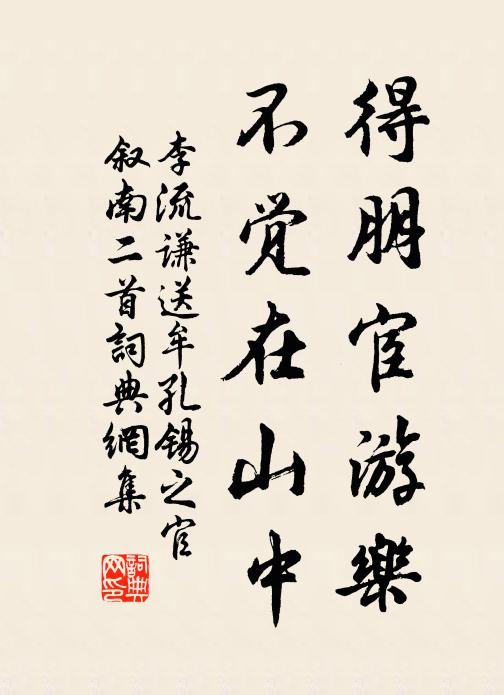 得朋宦游樂
不觉在山中
李流谦送牟孔锡之官
叙南二首詞典網集
詞典
网印